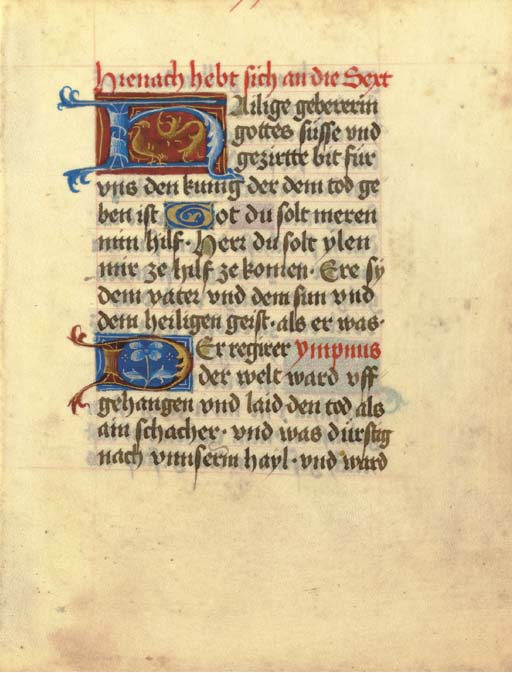 Hienach hebt sich an die Sext
HAilige gebererin
gottes süsse vnd
gezirtte bit für
vns den kunig der dem tod ge
ben ist Got du solt meren
min hilf · Herr du solt ylen
mir ze hilf ze komen · Ere sy
dem vater vnd dem sun vnd
dem heiligen geist · als er was ·
DEr regirer ympnus
der welt ward vff
gehangen vnd laid den tod als
ain schacher · vnd was dürstig
nach vnnserm hayl · vnd ward